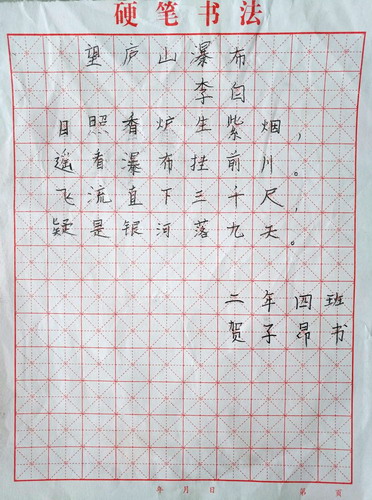 硬笔书法
望庐山瀑布
李白
日照香炉生紫烟，
遥看瀑布挂前川。
飞流直下三千尺，
疑是银河落九天。
二年四班
贺子昂书
年月日 第页